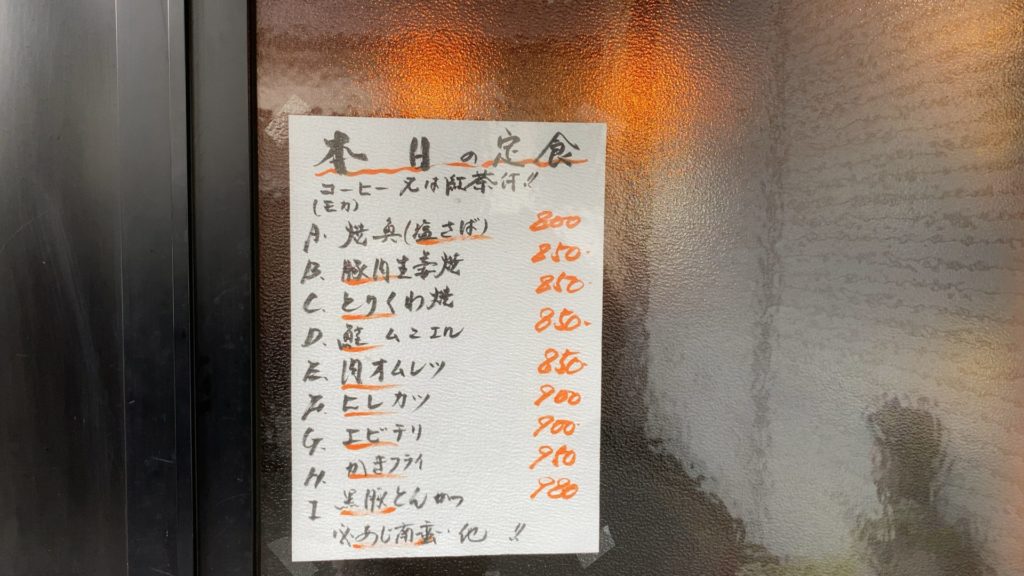 本日の定食
コーヒー又は紅茶付!!
(モカ)
A. 焼魚(塩さば) 800
B. 豚肉生姜焼 850.
C. とりくわ焼 850.
D. 鮭ムニエル 850.
E. 肉オムレツ 850
F. ヒレカツ 900
G. エビテリ 900.
H. かきフライ 950
I 黒豚とんかつ 980
※あじ南蛮・他!!